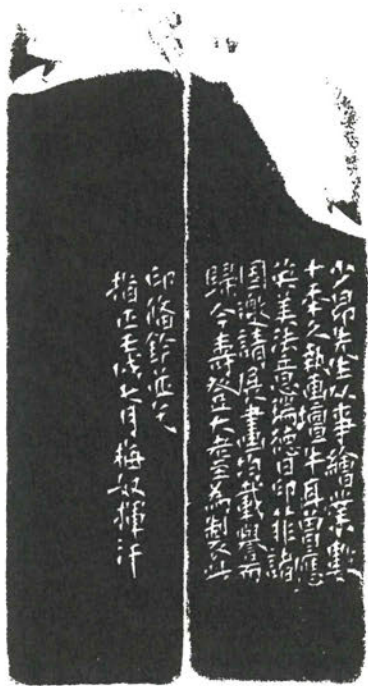 少昂先生从事繪業數
十年久執画壇牛耳曾應
英美法意瑞德日印菲諸
國邀請展畫頃載譽而
歸今壽登大耋為製此
印備鈐並乞
指正壬戌七月梅奴揮汗